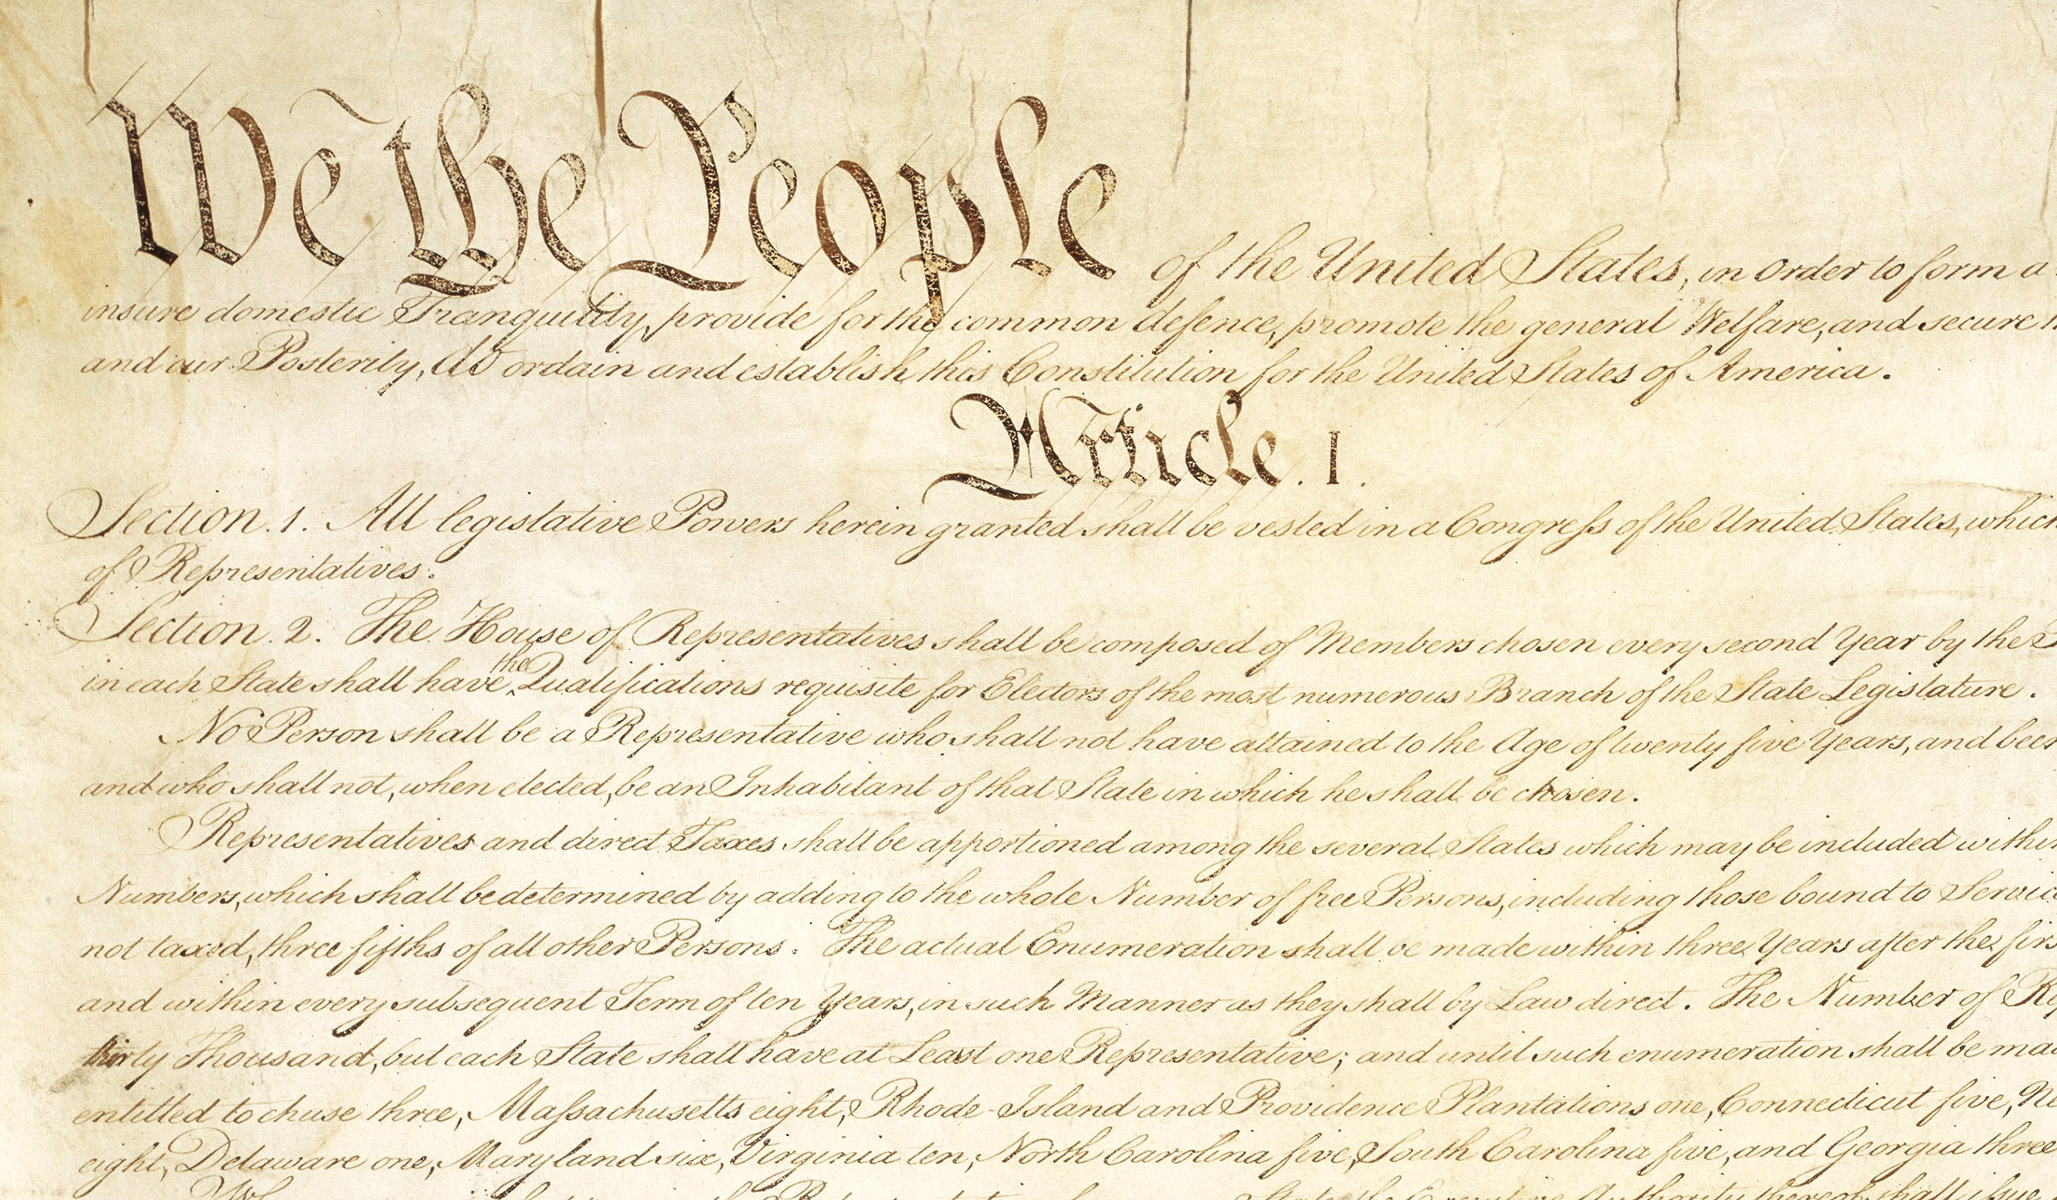 We the People of the United States, in Order to form a
insure domestic Tranquility, provide for the common defence, promote the general Welfare, and secure
and our Posterity, do ordain and establish this Constitution for the United States of America.
Article. I.
Section. 1. All legislative Powers herein granted shall be vested in a Congress of the United States, which
of Representatives.
Section. 2. The House of Representatives shall be composed of Members chosen every second Year by the
in each State shall have the Qualifications requisite for Electors of the most numerous Branch of the State Legislature.
No Person shall be a Representative who shall not have attained to the Age of twenty five Years, and been
and who shall not, when elected, be an Inhabitant of that State in which he shall be chosen.
Representatives and direct Taxes shall be apportioned among the several States which may be included within
Numbers, which shall be determined by adding to the whole Number of free Persons, including those bound to Service
not taxed, three fifths of all other Persons. The actual Enumeration shall be made within three Years after the firs
and within every subsequent Term of ten Years, in such Manner as they shall by Law direct. The Number of
thirty Thousand, but each State shall have at Least one Representative; and until such enumeration shall be made
entitled to chuse three, Massachusetts eight, Rhode-Island and Providence Plantations one, Connecticut five,
eight, Delaware one, Maryland six, Virginia ten, North Carolina five, South Carolina five, and Georgia three